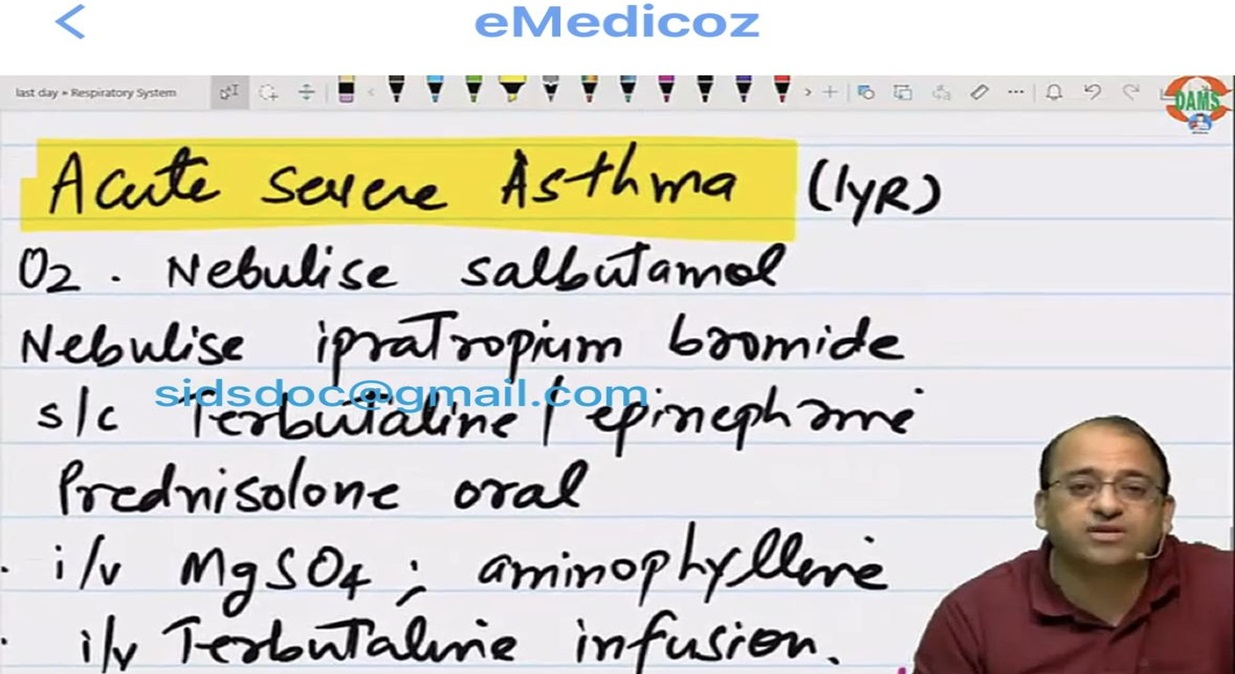 eMedicoz
last day » Respiratory System
DAMS
Acute Severe Asthma (1yR)
O2 . Nebulise salbutamol
Nebulise ipratropium bromide
sidsdoc@gmail.com
s/c Terbutaline / epinephrine
Prednisolone oral
. i/v MgSO4 ; aminophylline
. i/v Terbutaline infusion.